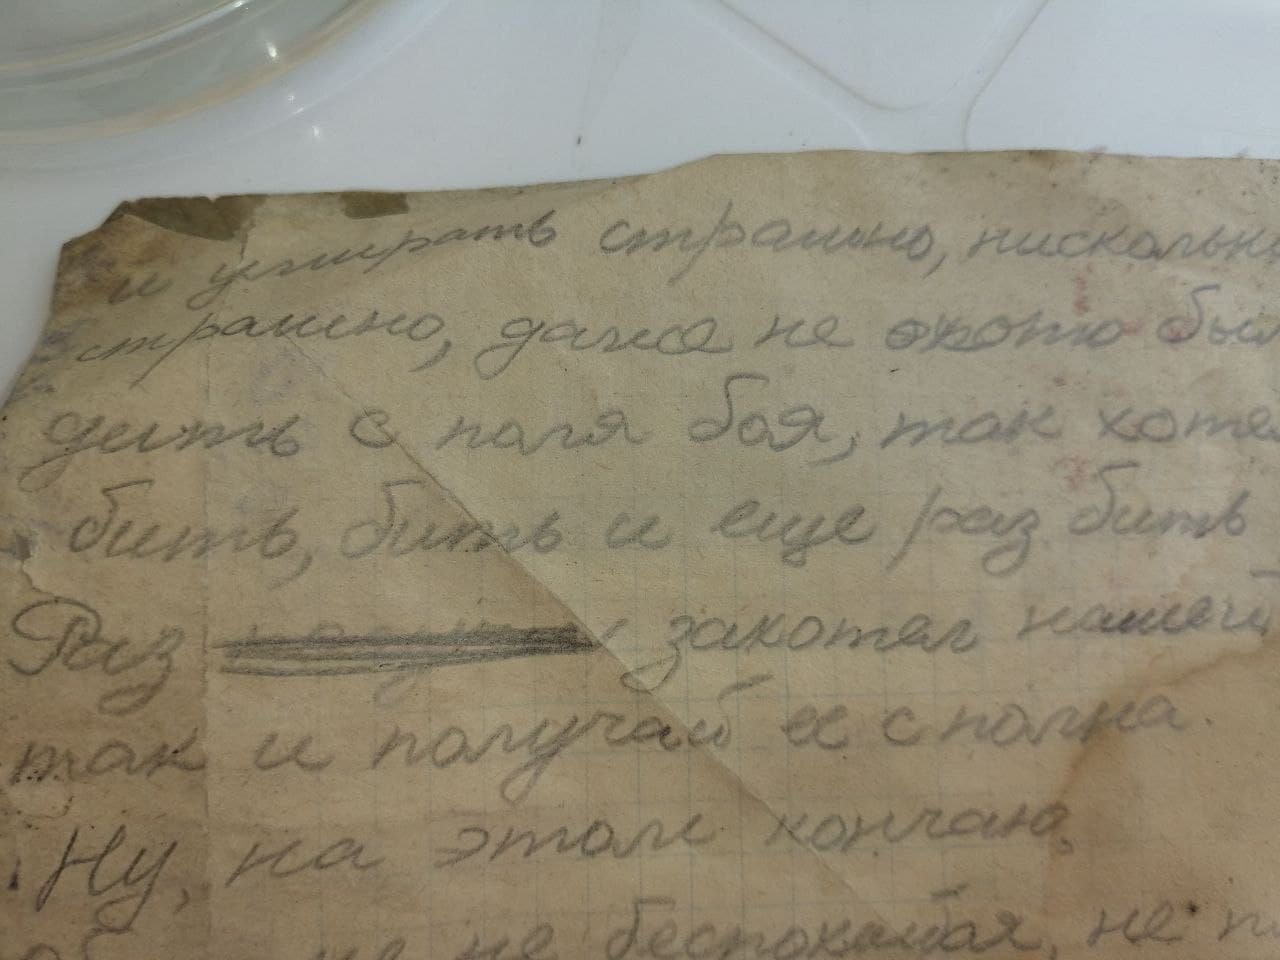 и умирать страшно, нискольк
страшно, даже не охото был
дить с поля боя, так хоте
бить, бить и еще раз бить
Раз захотел нашей
так и получай ее сполна.
Ну, на этом кончаю,
не беспокойся, не